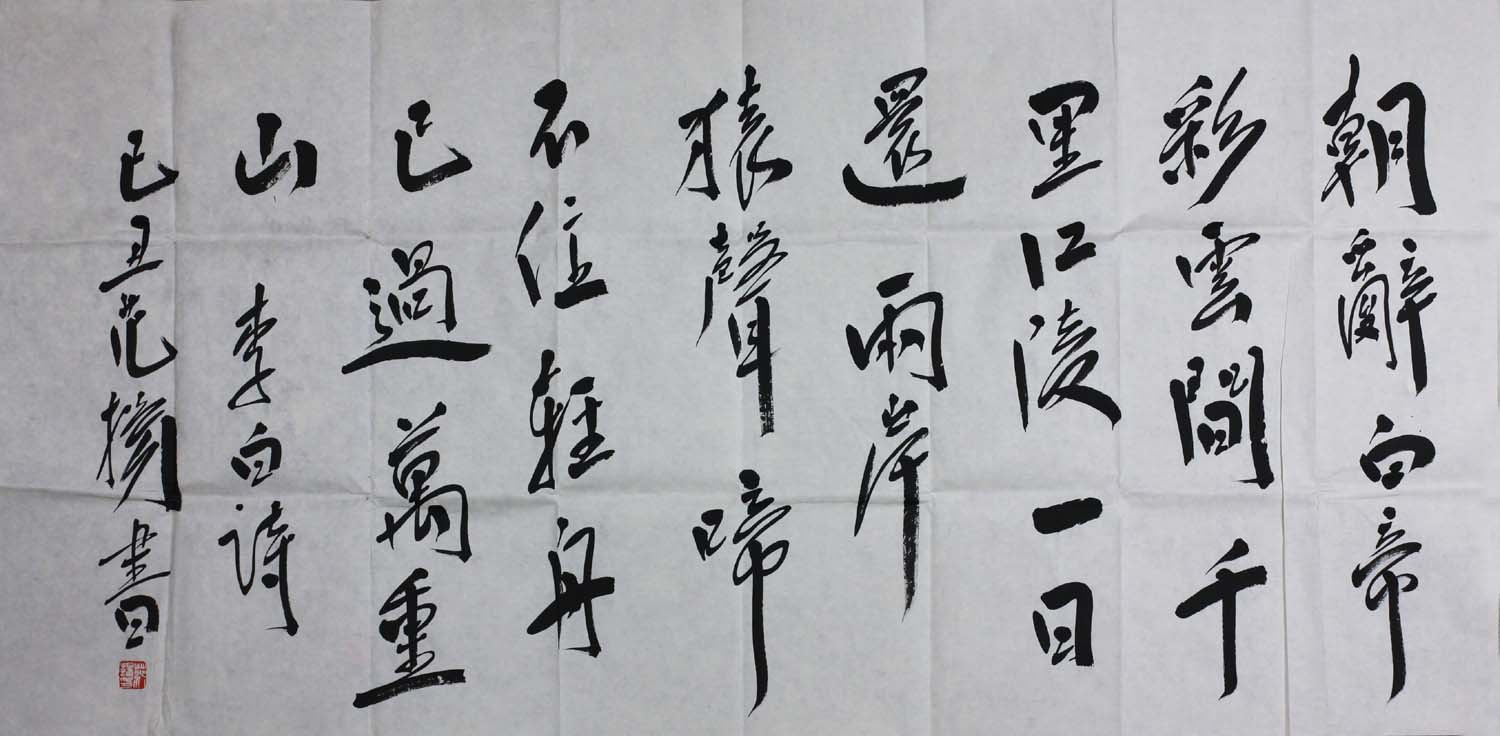 朝辭白帝
彩雲間千
里江陵一日
還兩岸
猿聲啼
不住輕舟
已過萬重
山 李白詩
己丑范揚書